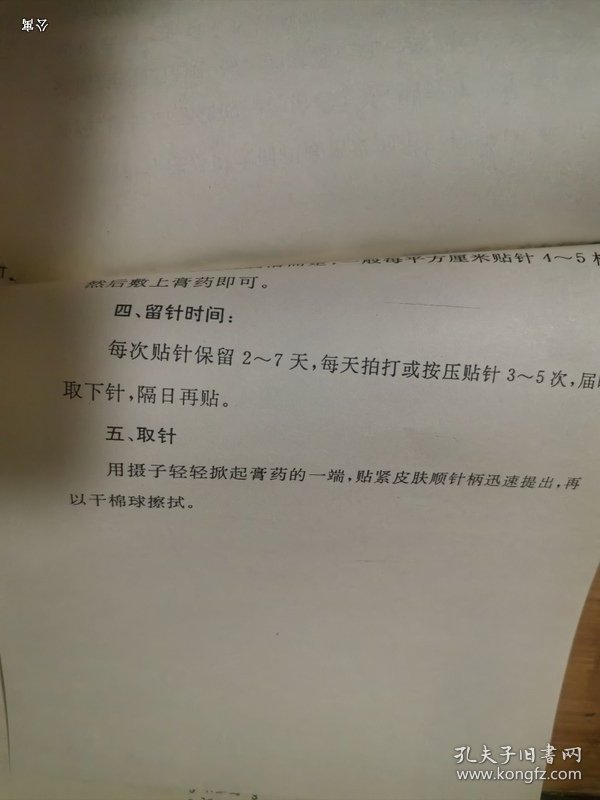 公寓
一般每平方厘米贴针4～5
然后敷上膏药即可。
四、留针时间：
每次贴针保留2～7天，每天拍打或按压贴针3～5次，届
取下针，隔日再贴。
五、取针
用摄子轻轻掀起膏药的一端，贴紧皮肤顺针柄迅速提出，再
以干棉球擦拭。
孔夫子旧书网
www.kongfz.com